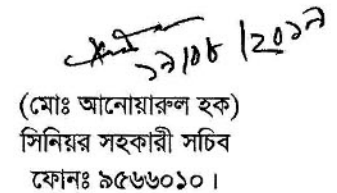 ১৯/০৮/২০১৯
(মোঃ আনোয়ারুল হক)
সিনিয়র সহকারী সচিব
ফোনঃ ৯৫৬৬০১০।